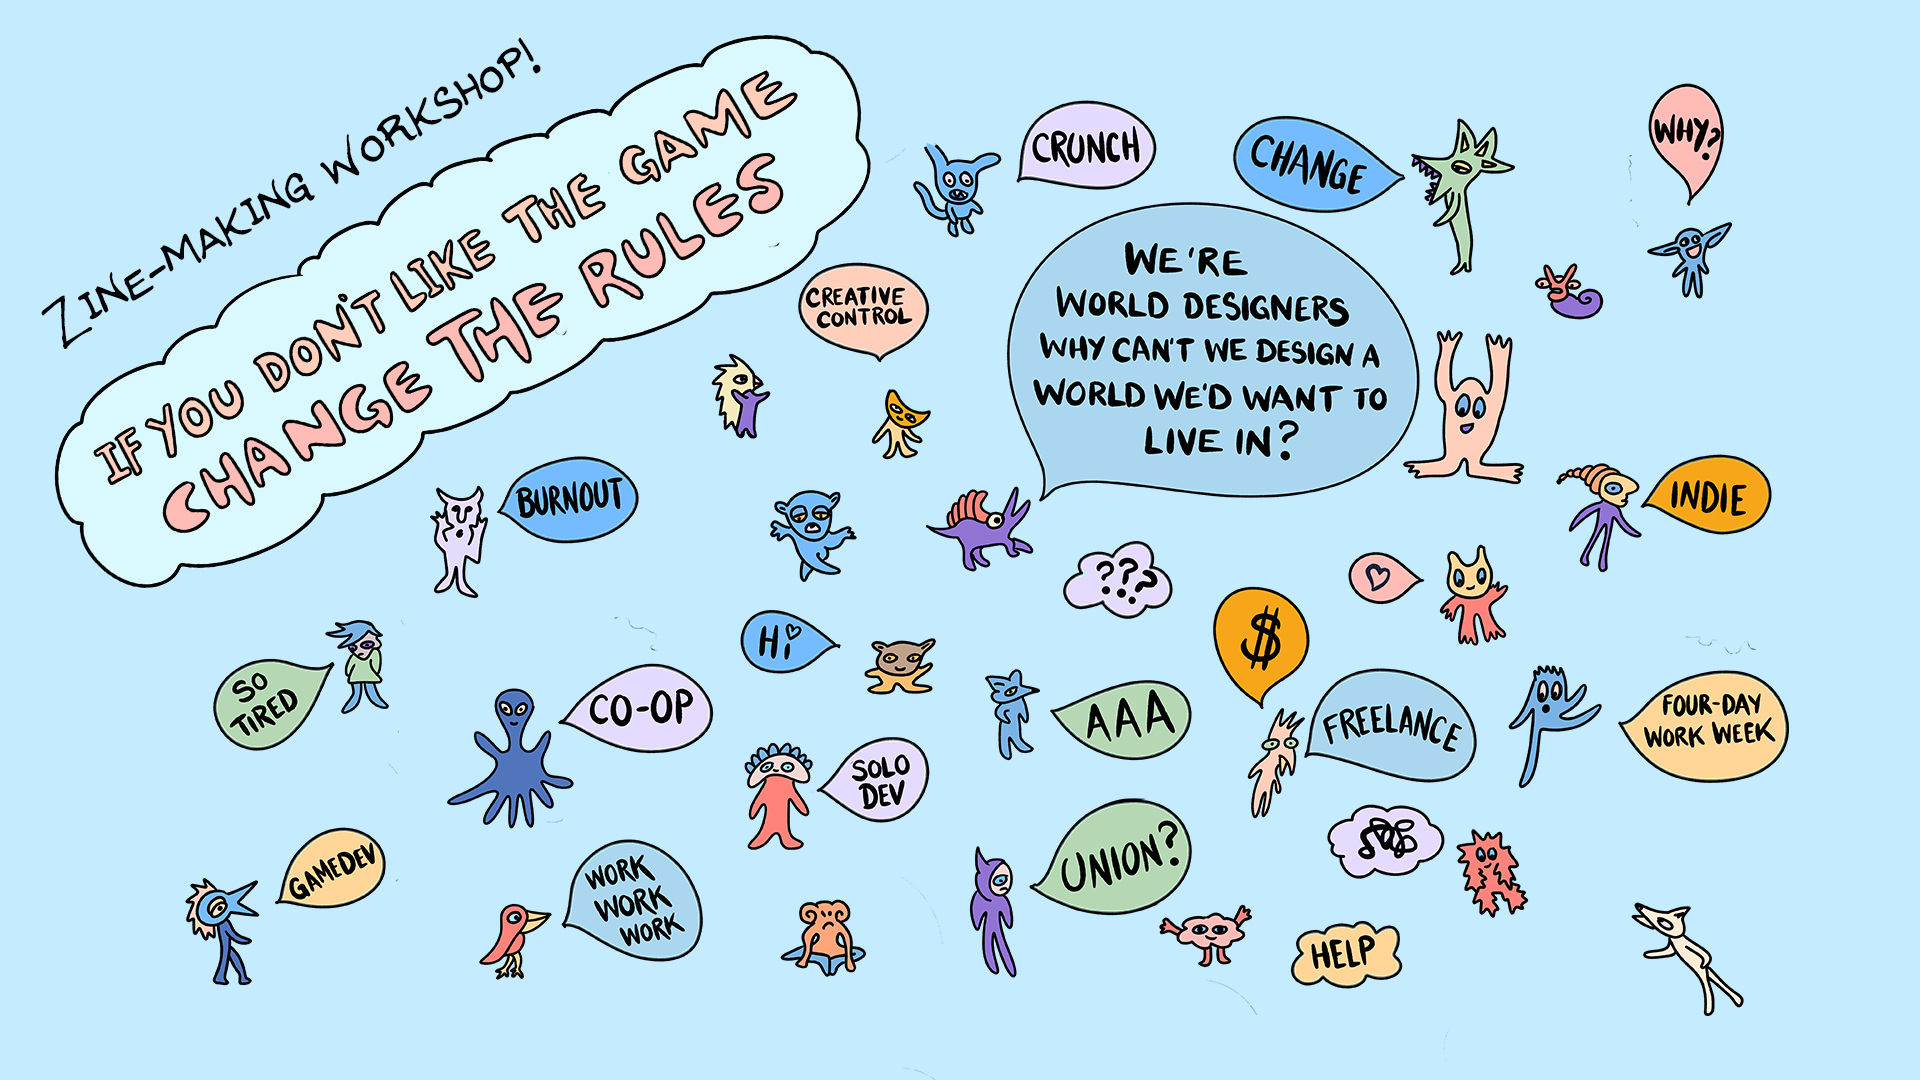 ZINE-MAKING WORKSHOP!
IF YOU DON'T LIKE THE GAME
CHANGE THE RULES
CRUNCH
CHANGE
WHY?
CREATIVE
CONTROL
WE'RE
WORLD DESIGNERS
WHY CAN'T WE DESIGN A
WORLD WE'D WANT TO
LIVE IN?
BURNOUT
INDIE
???
HI
$
SO
TIRED
CO-OP
AAA
FREELANCE
FOUR-DAY
WORK WEEK
SOLO
DEV
GAMEDEV
WORK
WORK
WORK
UNION?
HELP